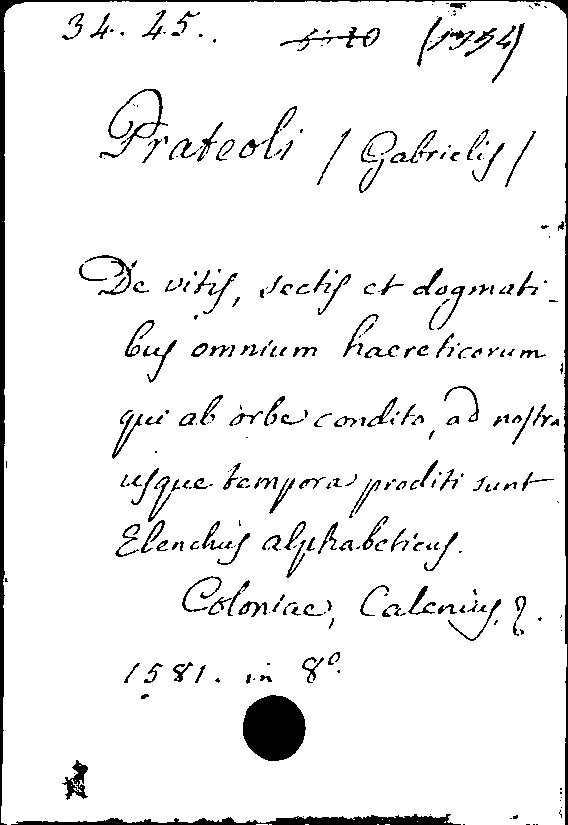 34. 45..
(1354)
Prateoli / Gabrielis /
De vitis, sectis et dogmati-
bus omnium haereticorum
qui ab orbe condito, ad nostra
usque tempora proditi sunt
Elenchus alphabeticus.
Coloniae, Calenius,
1581. in 8º.